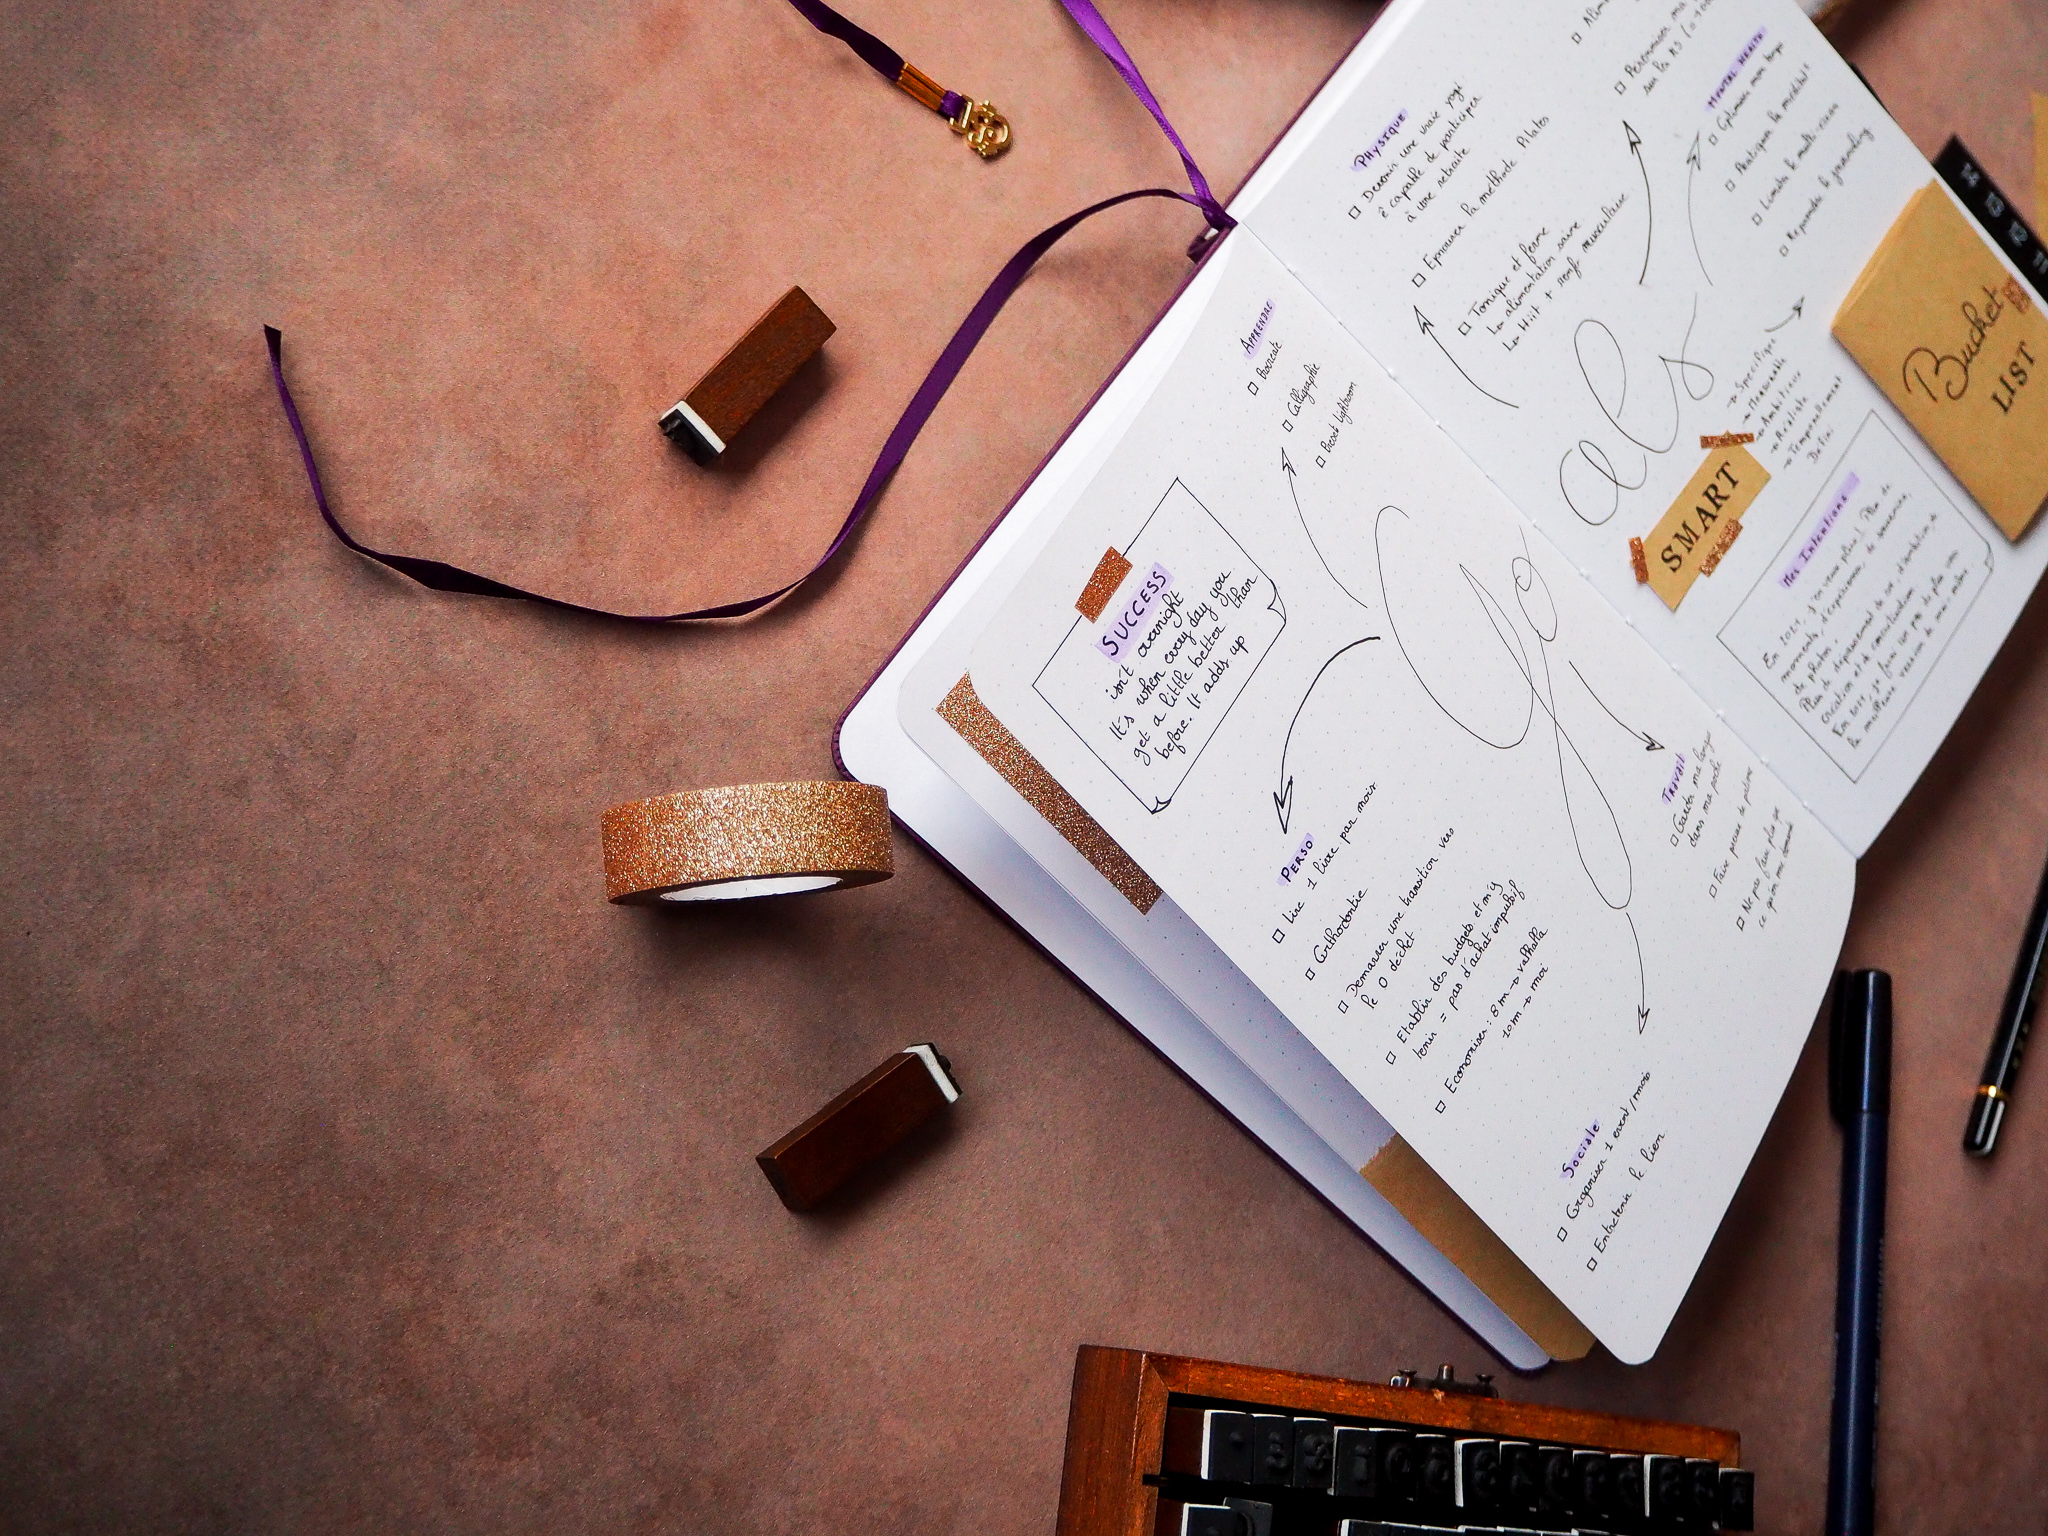 APPRENDRE
Procreate
Calligraphie
Preset lightroom
SUCCESS
isn't overnight
It's when every day you
get a little better than
before. It adds up
Go
PERSO
Lire 1 livre par mois
Orthodontie
Démarrer une transition vers
le 0 déchet
Etablir des budgets et m'y
tenir = pas d'achat impulsif
Economiser : 8m → valhalla
10m → moi
SOCIALE
Organiser 1 event/mois
Entretenir le lien
TRAVAIL
Garder ma langue
dans ma poche
Faire preuve de
Ne pas faire plus que
ce qu'on me demande
PHYSIQUE
Devenir une vraie yogi
ê capable de participer
à une retraite
Epouser la méthode Pilates
Tonique et ferme
↳ alimentation saine
↳ Hiit + renf musculaire
als
sur la RS
MENTAL HEALTH
Optimiser mon temps
Pratiquer la
Limiter le multi-
Reprendre le journaling
→ Spécifique
→ Mesurable
→ Ambitieux
→ Réaliste
→ Temporellement
Défini
SMART
Bucket
LIST
14 13 12 11
Mes Intentions
En 2021, j'en veux plus! Plus de
moments, d'expériences, de souvenirs,
de photos.
Plus de dépassement de soi, d'ambition,
création et de concrétisation
En 2021, je serai un peu plus
la meilleure version de moi-même